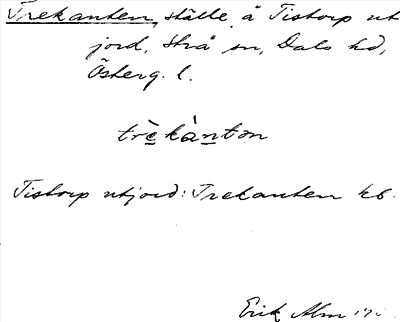 Trekanten, ställe å Tistorp ut
jord, Strå sn, Dals hd,
Österg. l.
trèkànton
Tistorp utjord: Trekanten kb.
Erik Alm